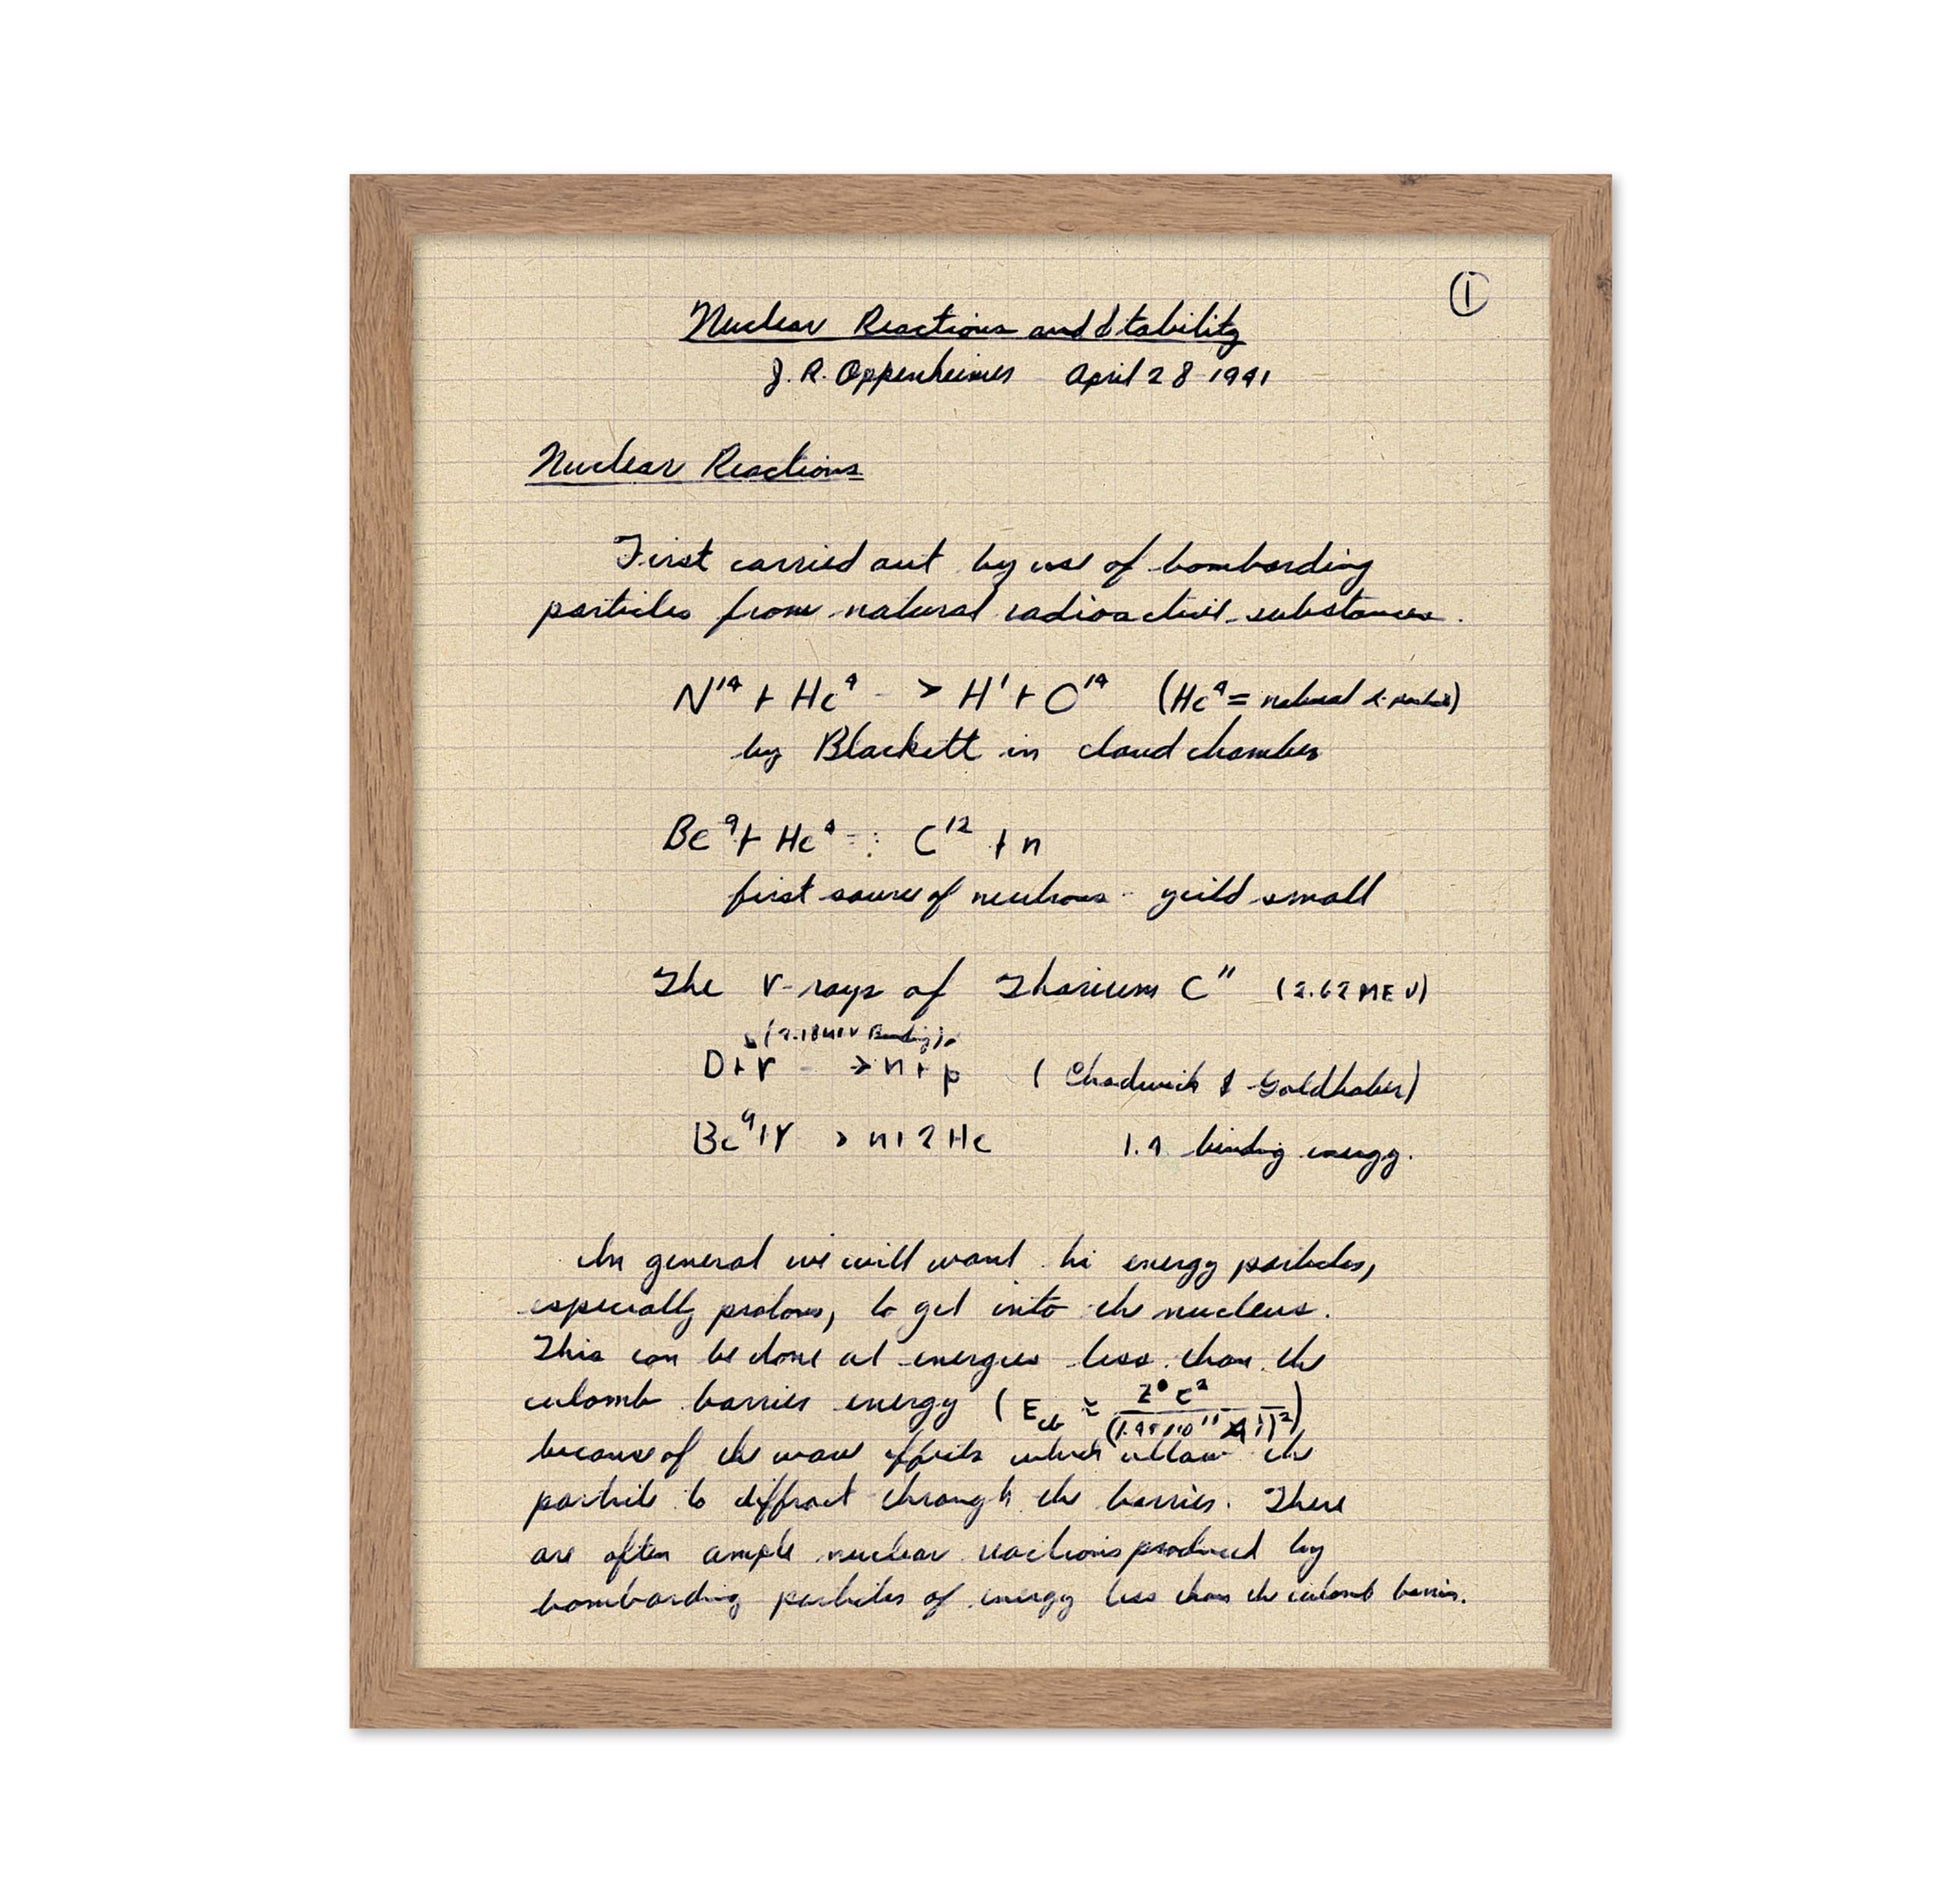 ①
Nuclear Reactions and Stability
J. R. Oppenheimer April 28 1941
Nuclear Reactions
First carried out by use of bombarding
particles from natural radioactive substances.
N¹⁴ + He⁴ -> H¹ + O¹⁴ (He⁴ = natural α-particle)
by Blackett in cloud chamber
Be⁹ + He⁴ -: C¹² + n
first source of neutrons - yield small
The γ-rays of Thorium C" (2.62 MEV)
(2.18 MEV Binding)
D + γ -> n + p (Chadwick & Goldhaber)
Be⁹ + γ > n + 2 He binding energy.
In general we will want hi energy particles,
especially protons, to get into the nucleus.
This can be done at energies less than the
culomb barrier energy (E_cb ≈
because of the wave effects which allow the
particle to diffract through the barrier. There
are often ample nuclear reactions produced by
bombarding particles of energy less than the culomb barrier.